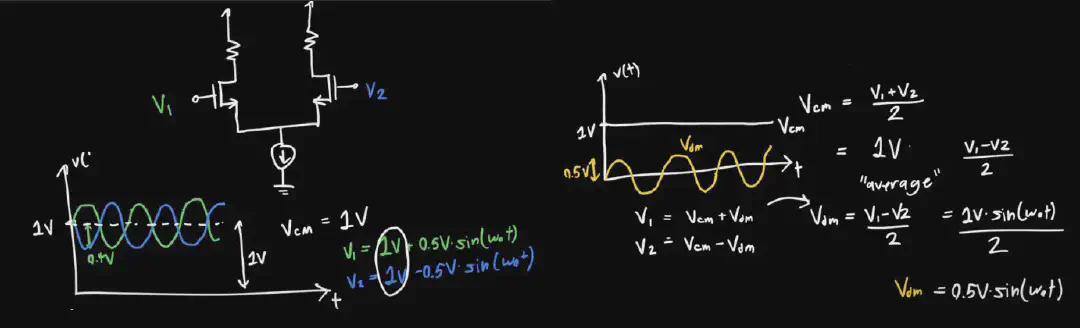 V₁
V₂
v(
1V
0.4V
1V
t
Vcm = 1V
V₁ = 1V + 0.5V·sin(ω₀t)
V₂ = 1V - 0.5V·sin(ω₀t)
v(t)
1V
Vcm
Vdm
0.5V
t
V₁ = Vcm + Vdm
V₂ = Vcm - Vdm
Vcm = V₁+V₂ / 2
= 1V
"average"
V₁-V₂ / 2
Vdm = V₁-V₂ / 2 = 1V·sin(ω₀t) / 2
Vdm = 0.5V·sin(ω₀t)